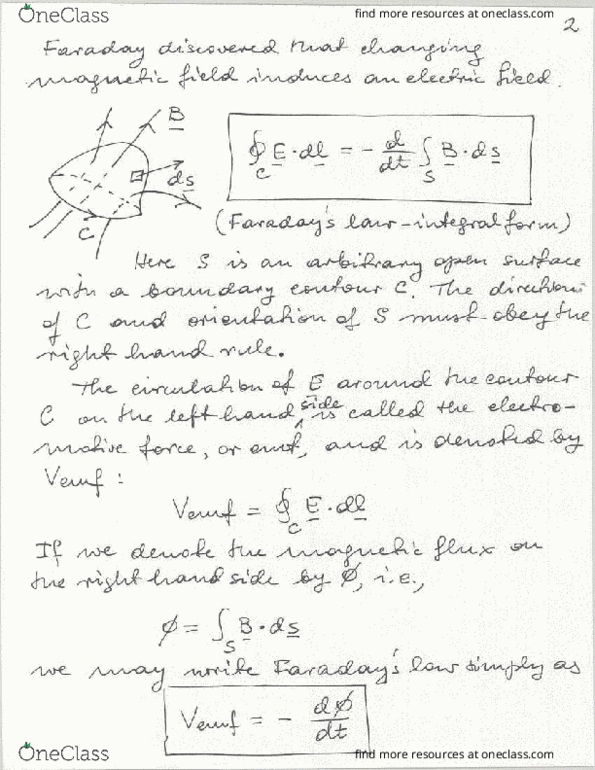 OneClass
find more resources at oneclass.com
2
Faraday discovered that changing
magnetic field induces an electric field.
B
ds
C
∮_C E · dl = - d/dt ∫_S B · ds
(Faraday's law - integral form)
Here S is an arbitrary open surface
with a boundary contour C. The direction
of C and orientation of S must obey the
right hand rule.
The circulation of E around the contour
C on the left hand side is called the electro-
motive force, or emf, and is denoted by
Vemf :
Vemf = ∮_C E · dl
If we denote the magnetic flux on
the right hand side by ϕ, i.e.,
ϕ = ∫_S B · ds
we may write Faraday's law simply as
Vemf = - dϕ/dt
OneClass
find more resources at oneclass.com